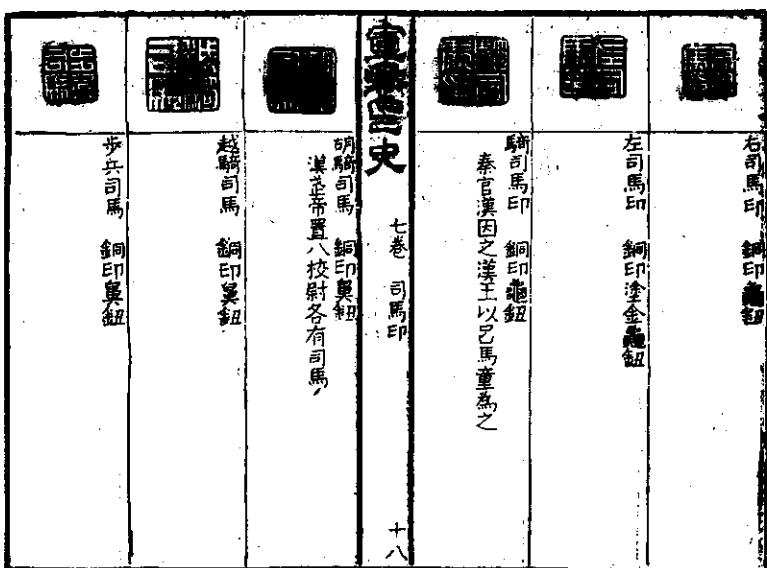 右司馬印　銅印龜鈕
左司馬印　銅印塗金龜鈕
騎司馬印　銅印龜鈕
秦官漢因之漢王以呂馬童為之
七卷　司馬印
十八
胡騎司馬　銅印鼻鈕
漢武帝置八校尉各有司馬
越騎司馬　銅印鼻鈕
步兵司馬　銅印鼻鈕